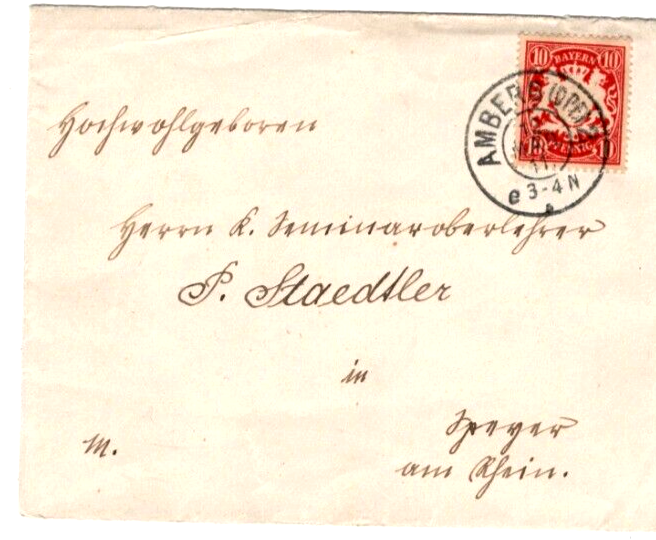 10 BAYERN 10
PFENNIG
AMBERG (OPF) 2
11
e 3-4 N
Hochwohlgeboren
Herrn K. Seminaroberlehrer
P. Staedtler
in
Speyer
am Rhein.
M.